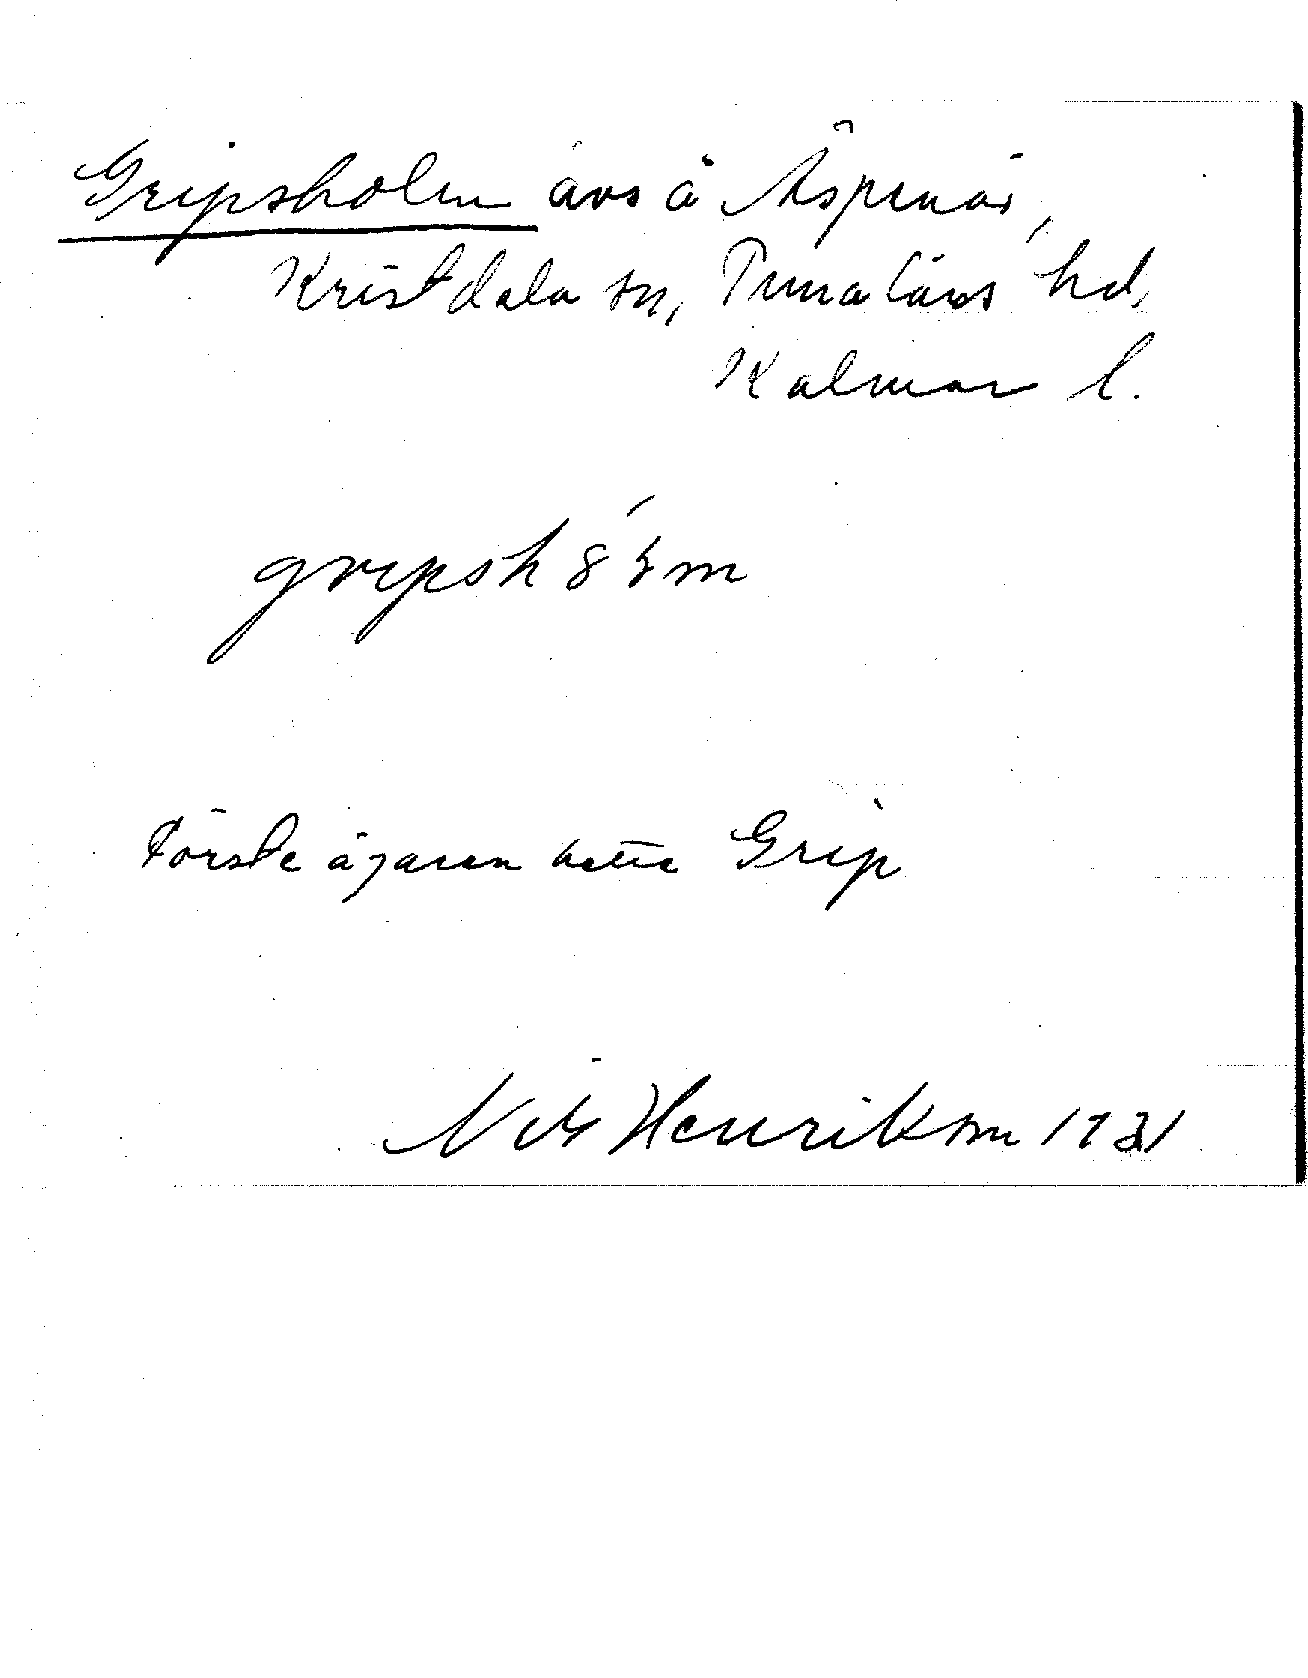 Gripsholm avs å Äspenäs,
Kristdala sn, Tunaläns hd,
Kalmar l.
gripsh
Förste ägaren hette Grip
Nils Henrikson 1931